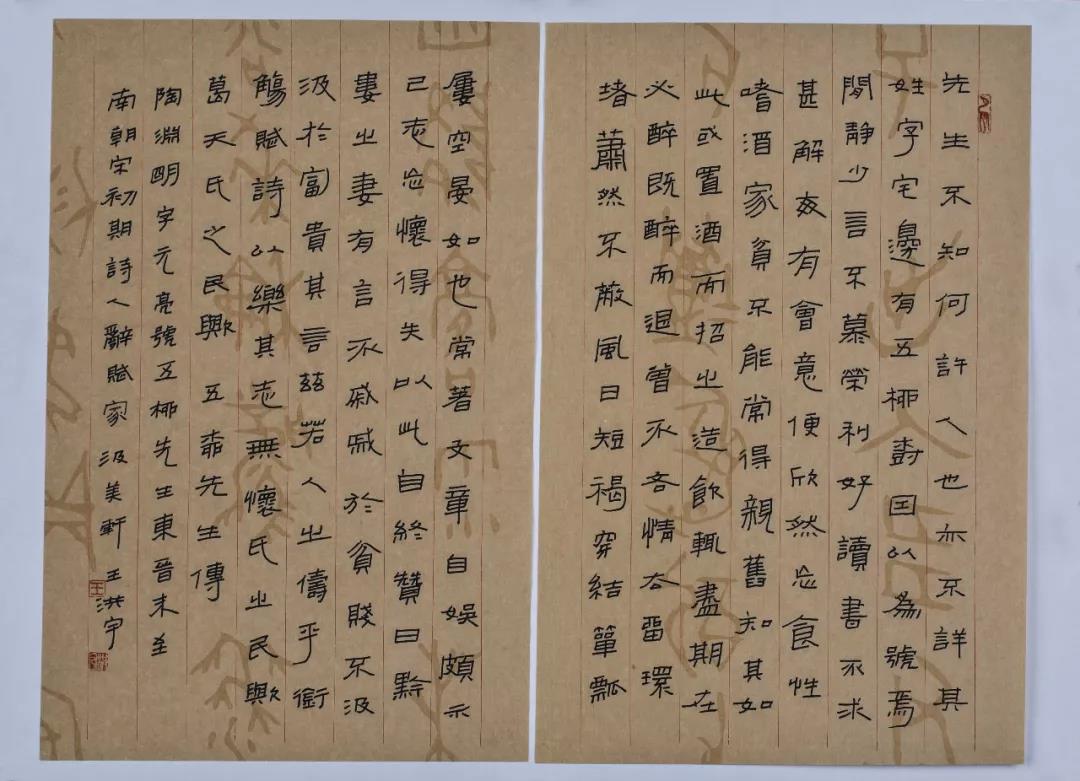 先生不知何許人也亦不詳其
姓字宅邊有五柳樹因以為號焉
閒靜少言不慕榮利好讀書不求
甚解每有會意便欣然忘食性
嗜酒家貧不能常得親舊知其如
此或置酒而招之造飲輒盡期在
必醉既醉而退曾不吝情去留環
堵蕭然不蔽風日短褐穿結簞瓢
屢空晏如也常著文章自娛頗示
己志忘懷得失以此自終贊曰黔
婁之妻有言不戚戚於貧賤不汲
汲於富貴其言茲若人之儔乎銜
觴賦詩以樂其志無懷氏之民歟
葛天氏之民歟 五柳先生傳
陶淵明字元亮號五柳先生東晉末至
南朝宋初期詩人辭賦家 汲美軒 王洪宇
王